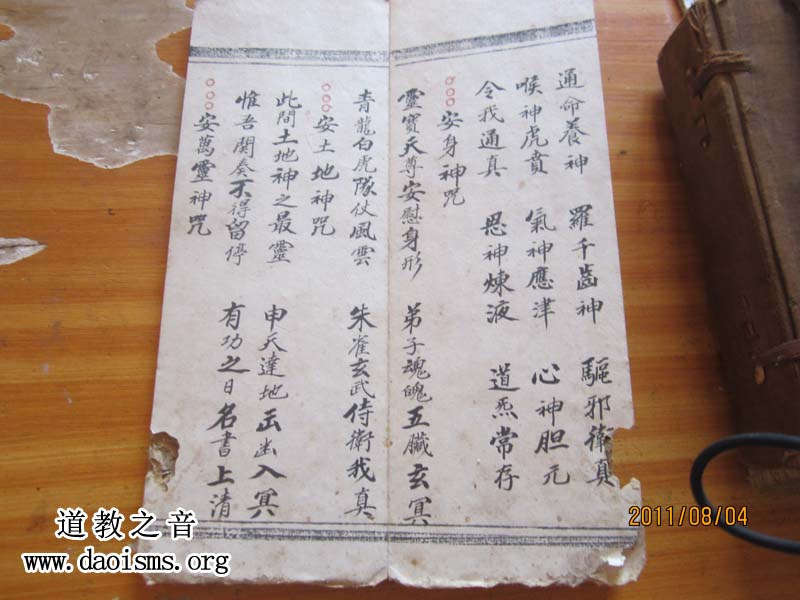 通命養神 羅千齒神 驅邪衛真
喉神虎賁 氣神應津 心神胆元
令我通真 恩神煉液 道炁常存
○○○安身神咒
靈寶天尊安慰身形 弟子魂魄五臟玄冥
青龍白虎隊仗風雲 朱雀玄武侍衛我真
○○○安土地神咒
此間土地神之最靈 申天達地出幽入冥
惟吾關奏不得留停 有功之日名書上清
○○○安萬靈神咒
道教之音
www.daoisms.org
2011/08/04